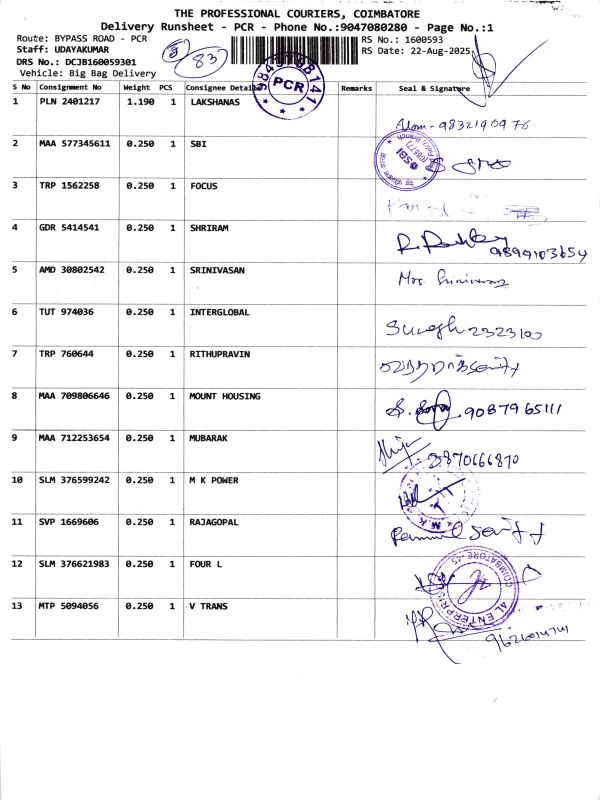 THE PROFESSIONAL COURIERS, COIMBATORE
Delivery Runsheet - PCR - Phone No.:9047080280 - Page No.:1
Route: BYPASS ROAD - PCR RS No.: 1600593
Staff: UDAYAKUMAR RS Date: 22-Aug-2025
DRS No.: DCJB160059301
Vehicle: Big Bag Delivery
3 83
PCR
S No Consignment No Weight PCS Consignee Details Remarks Seal & Signature
1 PLN 2401217 1.190 1 LAKSHANAS
2 MAA 577345611 0.250 1 SBI
SBI
3 TRP 1562258 0.250 1 FOCUS
4 GDR 5414541 0.250 1 SHRIRAM
9894103654
5 AMD 30802542 0.250 1 SRINIVASAN
Mrs. Srinivasan
6 TUT 974036 0.250 1 INTERGLOBAL
Suregh 2323100
7 TRP 760644 0.250 1 RITHUPRAVIN
8 MAA 709806646 0.250 1 MOUNT HOUSING
9087965111
9 MAA 712253654 0.250 1 MUBARAK
10 SLM 376599242 0.250 1 M K POWER
11 SVP 1669606 0.250 1 RAJAGOPAL
12 SLM 376621983 0.250 1 FOUR L
COIMBATORE-45
AL ENTERPRISES
13 MTP 5094056 0.250 1 V TRANS